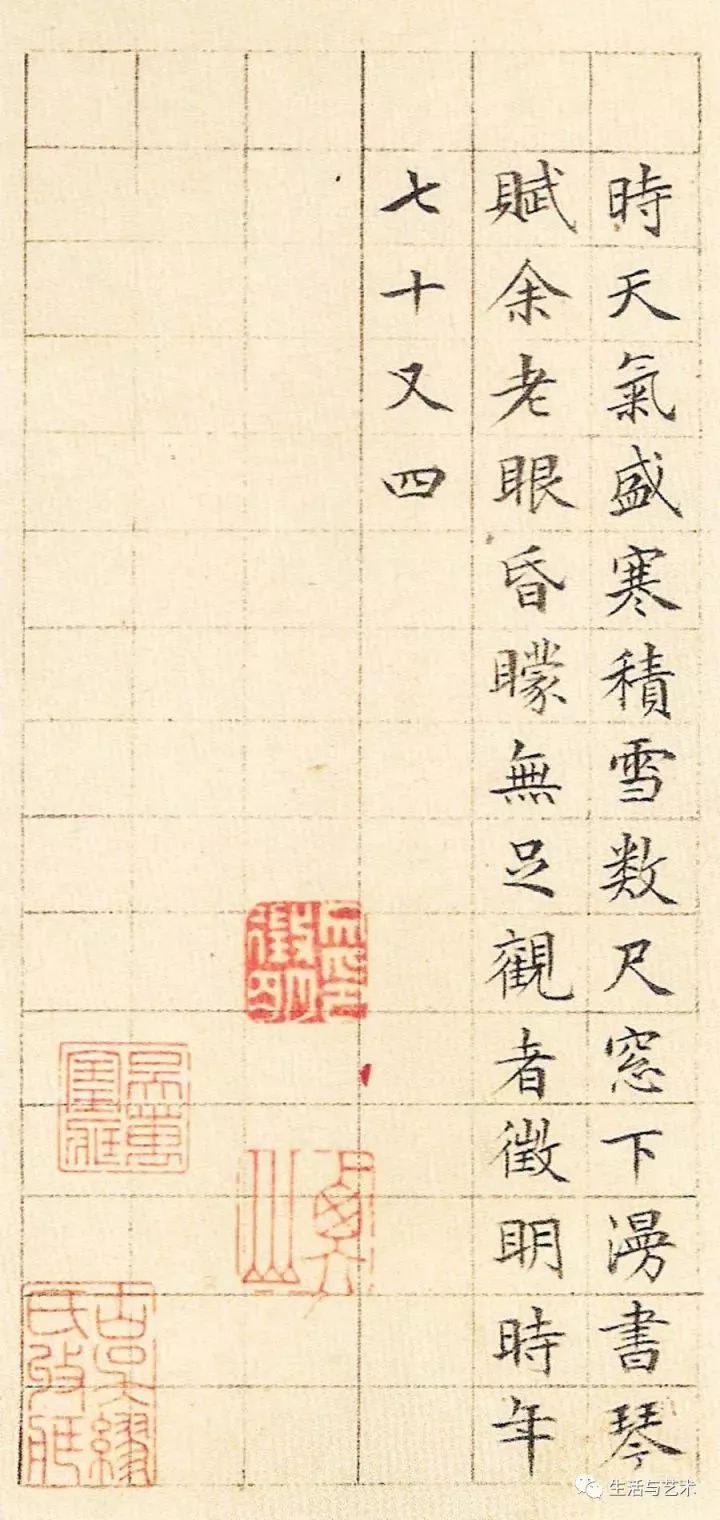 時天氣盛寒積雪数尺窓下漫書琴
賦余老眼昏矇無足觀者徵明時年
七十又四
生活与艺术